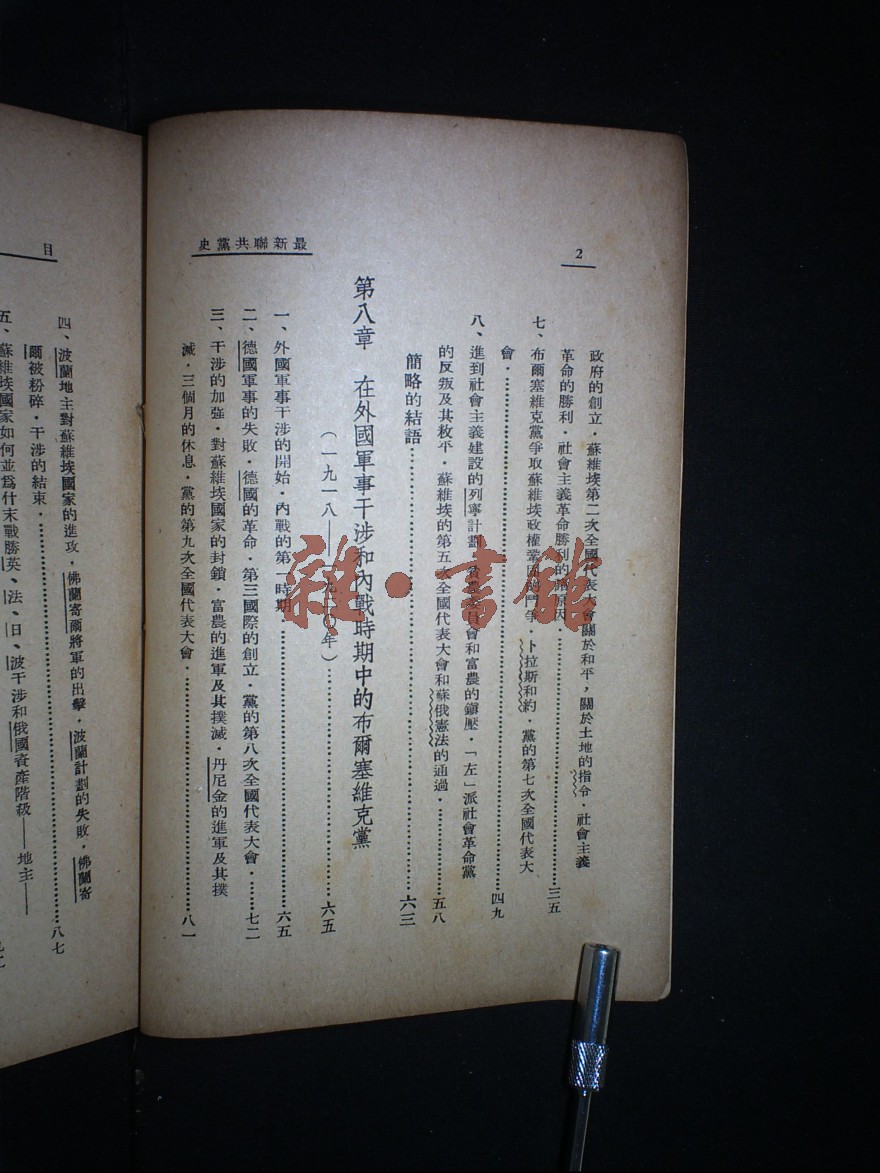 2
最新聯共黨史
政府的創立·蘇維埃第二次全國代表大會關於和平，關於土地的指令·社會主義
革命的勝利·社會主義革命勝利的諸原因·……三五
七、布爾塞維克黨爭取蘇維埃政權鞏固的鬥爭·卜拉斯和約·黨的第七次全國代表大
會·……四九
八、進到社會主義建設的列寧計劃·貧農委員會和富農的鎮壓·「左」派社會革命黨
的反叛及其敉平·蘇維埃的第五次全國代表大會和蘇俄憲法的通過·……五八
簡略的結語……六三
第八章　在外國軍事干涉和內戰時期中的布爾塞維克黨
（一九一八——一九二〇年）……六五
一、外國軍事干涉的開始·內戰的第一時期……六五
二、德國軍事的失敗·德國的革命·第三國際的創立·黨的第八次全國代表大會·……七二
三、干涉的加強·對蘇維埃國家的封鎖·富農的進軍及其撲滅·丹尼金的進軍及其撲
滅·三個月的休息·黨的第九次全國代表大會·……八一
目
四、波蘭地主對蘇維埃國家的進攻·佛蘭寄爾將軍的出擊·波蘭計劃的失敗·佛蘭寄
爾被粉碎·干涉的結束·……八七
五、蘇維埃國家如何並爲什末戰勝英、法、日、波干涉和俄國資產階級——地主——
雜·書館